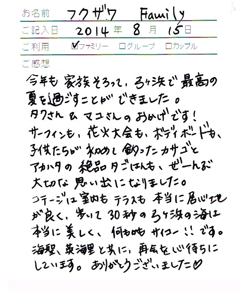 お名前 フクザワ Family
ご記入日 2014年8月15日
ご利用 ☑ファミリー □グループ □カップル
ご感想
今年も家族そろって、弓ヶ浜で最高の
夏を過ごすことができました。
タクさん&マコさんのおかげです!
サーフィンも、花火大会も、ボディボードも、
子供たちが初めて釣ったカサゴと
アカハタの絶品タごはんも、ぜーんぶ
大切な思い出になりました。
コテージは室内もテラスも本当に居心地
が良く、歩いて30秒の弓ヶ浜の海は
本当に美しく、何もかもサイコー!!です。
海聖、葵海里と共に、再会を心待ちに
しています。ありがとうございました♡